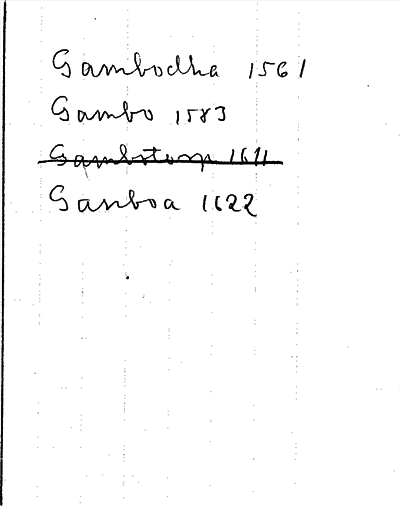 Gambodha 1561
Gambo 1583
Gambstorp 1611
Ganboa 1622